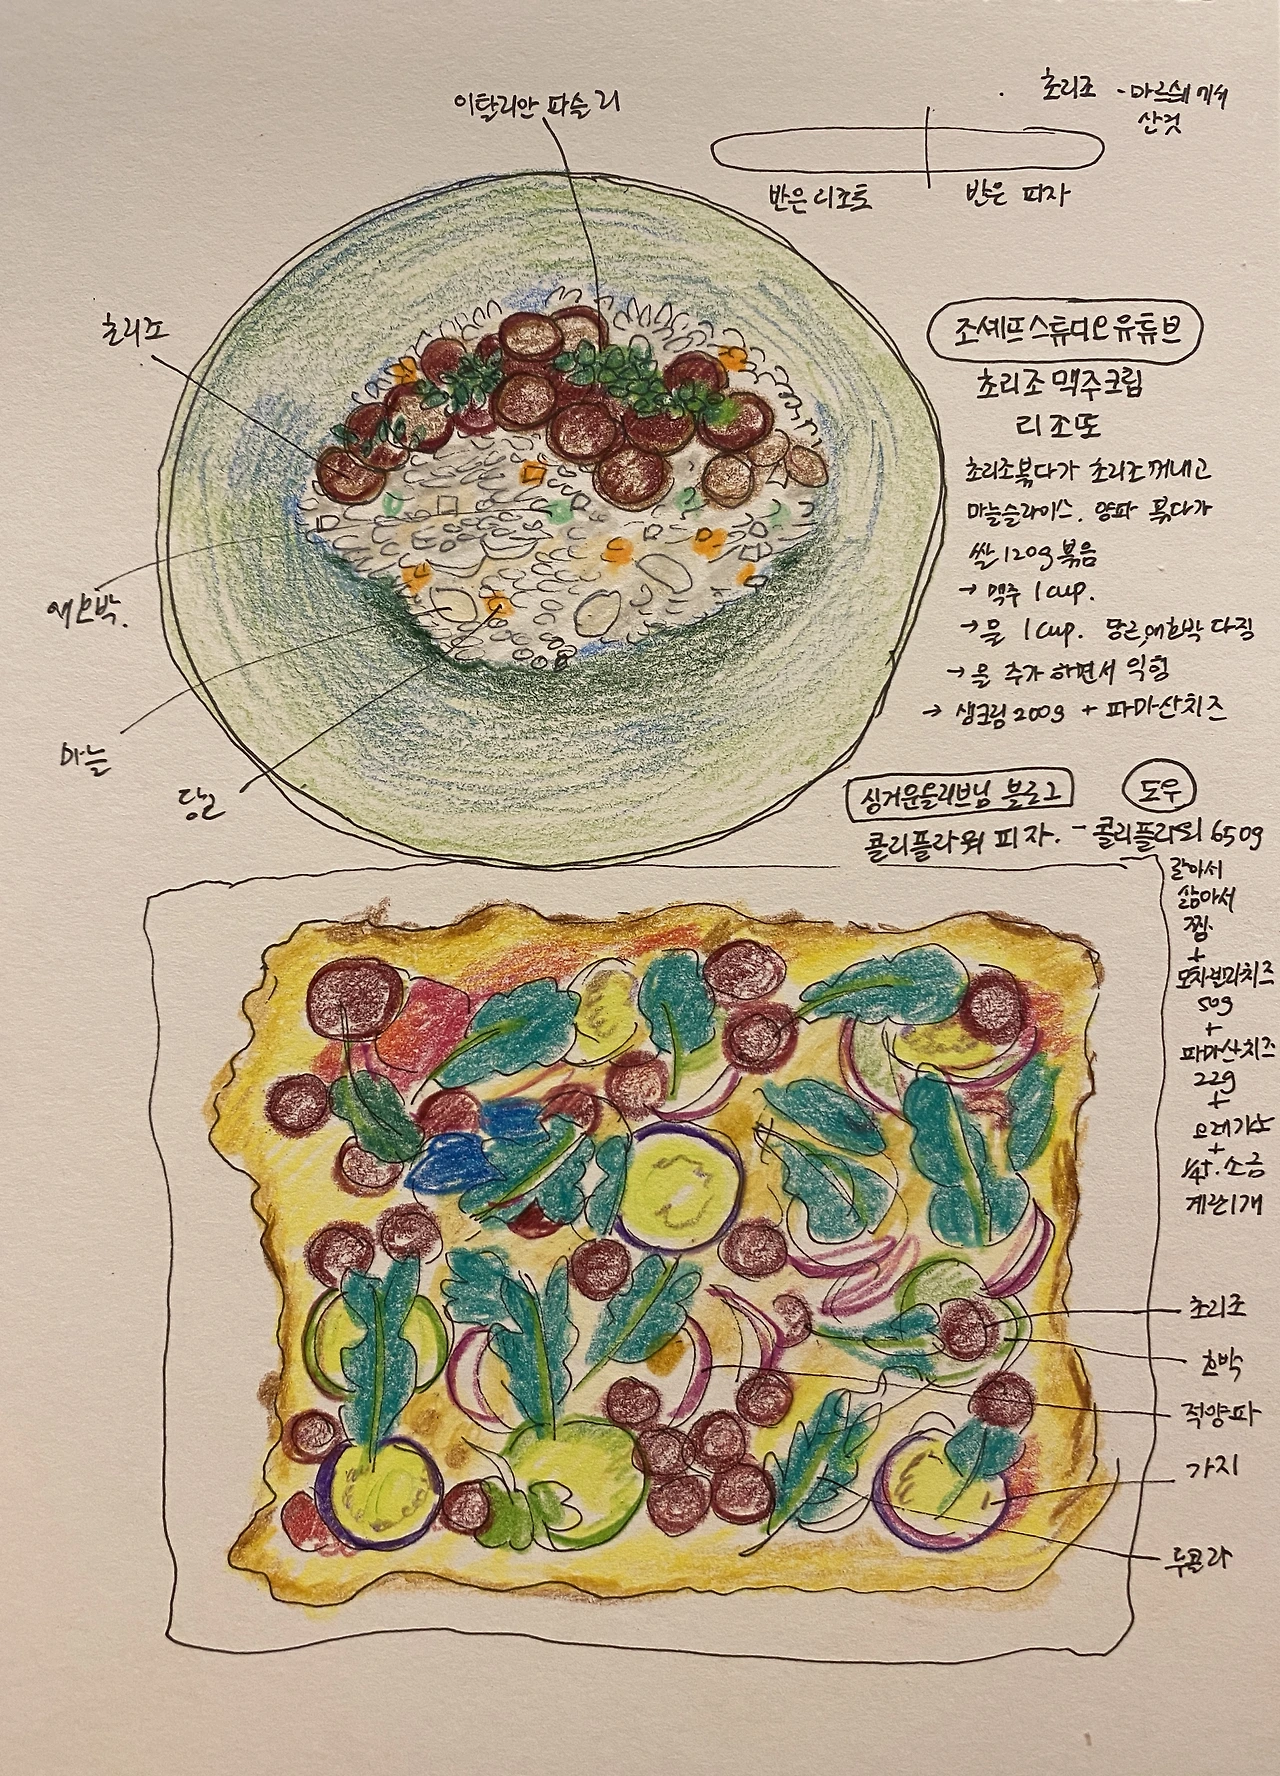 이탈리안 파슬리
초리조 - 마르쉐에서
산것
반은 리조또
반은 피자
초리조
애호박.
마늘
당근
조셰프스튜디오 유튜브
초리조 맥주크림
리조또
초리조볶다가 초리조 꺼내고
마늘슬라이스. 양파 볶다가
쌀 120g 볶음
→ 맥주 1cup.
→ 물 1cup. 당근,애호박 다짐
→ 물 추가 하면서 익힘
→ 생크림 200g + 파마산치즈
싱거운올리브님 블로그
콜리플라워 피자. -
도우
콜리플라워 650g
갈아서
삶아서
찜.
+
모차렐라치즈
50g
+
파마산치즈
22g
+
오레가노
+
1/4t. 소금
계란1개
초리조
호박
적양파
가지
루콜라